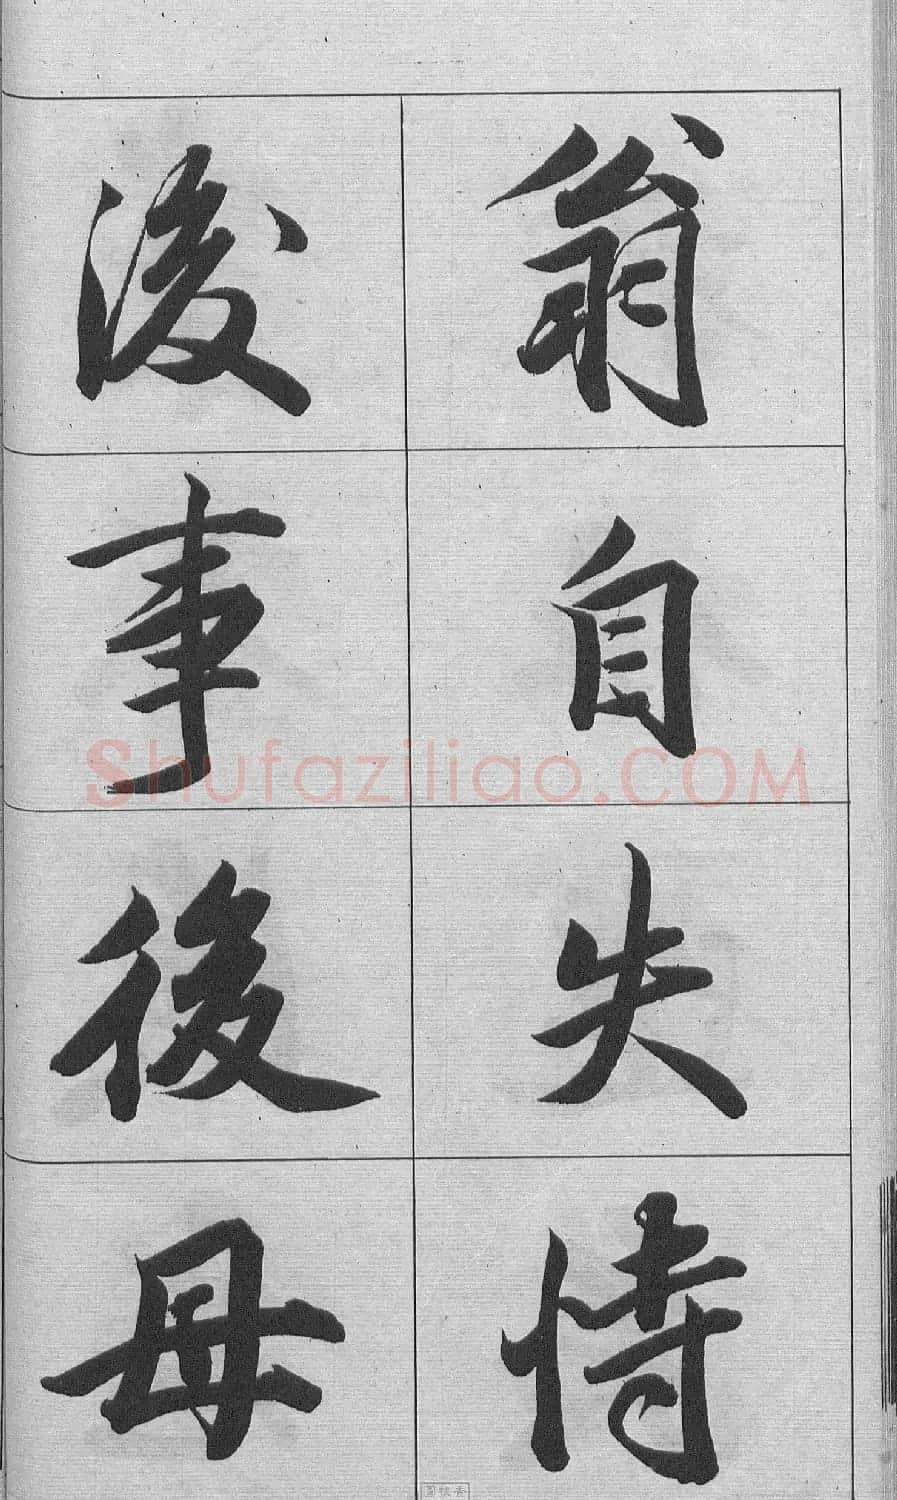 翁自失恃
事後母
Shufaziliao.COM